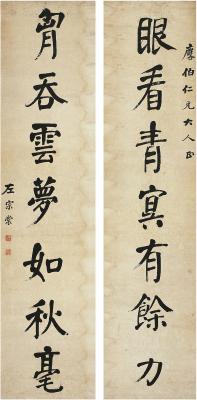 廖伯仁兄大人正
眼看青冥有餘力
胷吞雲夢如秋毫
左宗棠